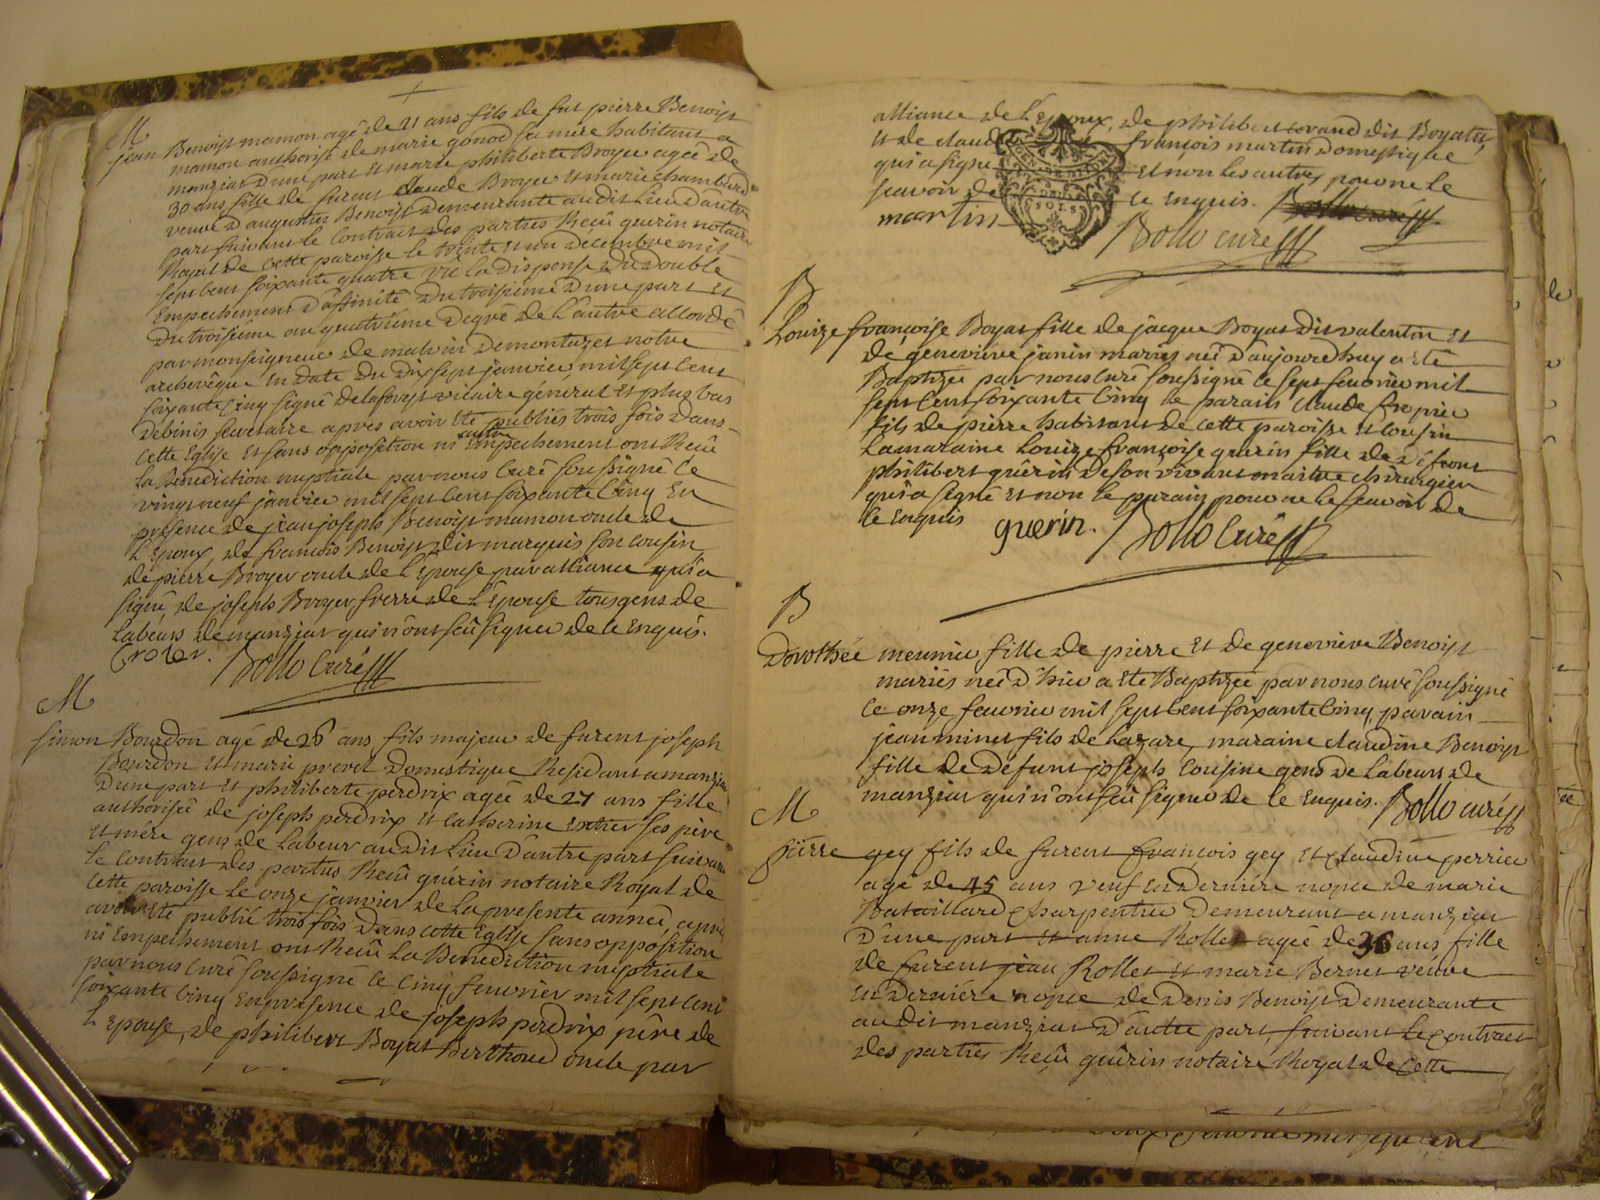 M
jean Benoist mamon agé de 21 ans fils de fut pierre Benoist
mamon authorisé de marie gonod sa mere habitant a
manziat d'une part et marie philiberte Broyer agée de
30 ans fille de furent claude Broyer et marie chambard
veuve d'augustin Benoist demeurante audit lieu d'autre
part suivant le contrat des parties Reçû guerin notaire
Royal de cette paroisse le trente et un decembre mil
sept cent soixante quatre vû la dispense du double
Empechement d'affinité du troisiéme d'une part et
du troisiéme au quatriéme degré de l'autre accordé
par monseigneur de malvin de montazet notre
archevêque en date du dix sept janvier mil sept cent
soixante cinq signé delaforest vicaire général et plus bas
debinis secretaire apres avoir été publiés trois fois dans
cette Eglise et sans opposition ni autre Empechement ont Reçû
la bénédiction nuptiale par nous Curé soussigné ce
vingt neuf janvier mil sept cent soixante cinq En
présence de jean joseph Benoist mamon oncle de
l'Epoux, de francois Benoist dit marquis son cousin
de pierre Broyer oncle de l'Epouse par alliance qui a
signé, de joseph Broyer frerre de l'Epouse tous gens de
Labeurs de manziat qui n'ont sçû signer de ce Enquis.
Croler. Bollo Curé
M
simon Bourdon agé de 26 ans fils majeur de furent joseph
Bourdon et marie prevet domestique Residant a manziat
d'une part et philiberte perdrix agée de 27 ans fille
authorisée de joseph perdrix et catherine ses père
et mere gens de Labeur audit Lieu d'autre part suivant
le contrat des parties Reçû guérin notaire Royal de
cette paroisse le onze janvier de la presente année, apres
avoir été publié trois fois dans cette Eglise sans opposition
ni Empechement ont Reçû La Bénédiction nuptiale
par nous curé soussigné ce cinq feuvrier mil sept cent
soixante cinq En présence de joseph perdrix père de
l'Epouse, de philibert Boyat Berthoud oncle par
alliance de l'Epoux, de philibert dit Boyaty
et de claude françois martin Domestique
qui a signé et non les autres pour ne le
sçavoir de ce Enquis. Bollo curé
martin Bollo curé
B
Louize françoise Boyat fille de jacque Boyat dit valentin et
de geneviéve janin mariés née d'aujourd'huy a été
Baptizée par nous curé soussigné ce sept feuvrier mil
sept cent soixante cinq le parain claude
fils de pierre habittant de cette paroisse et cousin
la maraine Louize françoise guérin fille de défunt
philibert guérin de son vivant maitre chirurgien
qui a signé et non le parain pour ne le sçavoir de
ce Enquis guerin. Bollo Curé
B
Dorothée meunier fille de pierre et de geneviéve Benoist
mariés née d'hier a été Baptizée par nous curé soussigné
ce onze feuvrier mil sept cent soixante cinq, parain
jean minet fils de Lazare, maraine claudine Benoist
fille de défunt joseph cousine gens de Labeurs de
manziat qui n'ont sçû signer de ce Enquis. Bollo curé
M
pierre gey fils de furent francois gey et claudine perrier
agé de 45 ans veuf en derniére nopce de marie
Bataillard charpentier demeurant a manziat
d'une part et anne Rollet agée de 36 ans fille
de furent jean Rollet et marie Bernet veuve
en derniére nopce de Denis Benoist demeurante
audit manziat d'autre part, suivant le contract
des parties Reçû guérin notaire Royal de cette
feuvrier mil sept cent